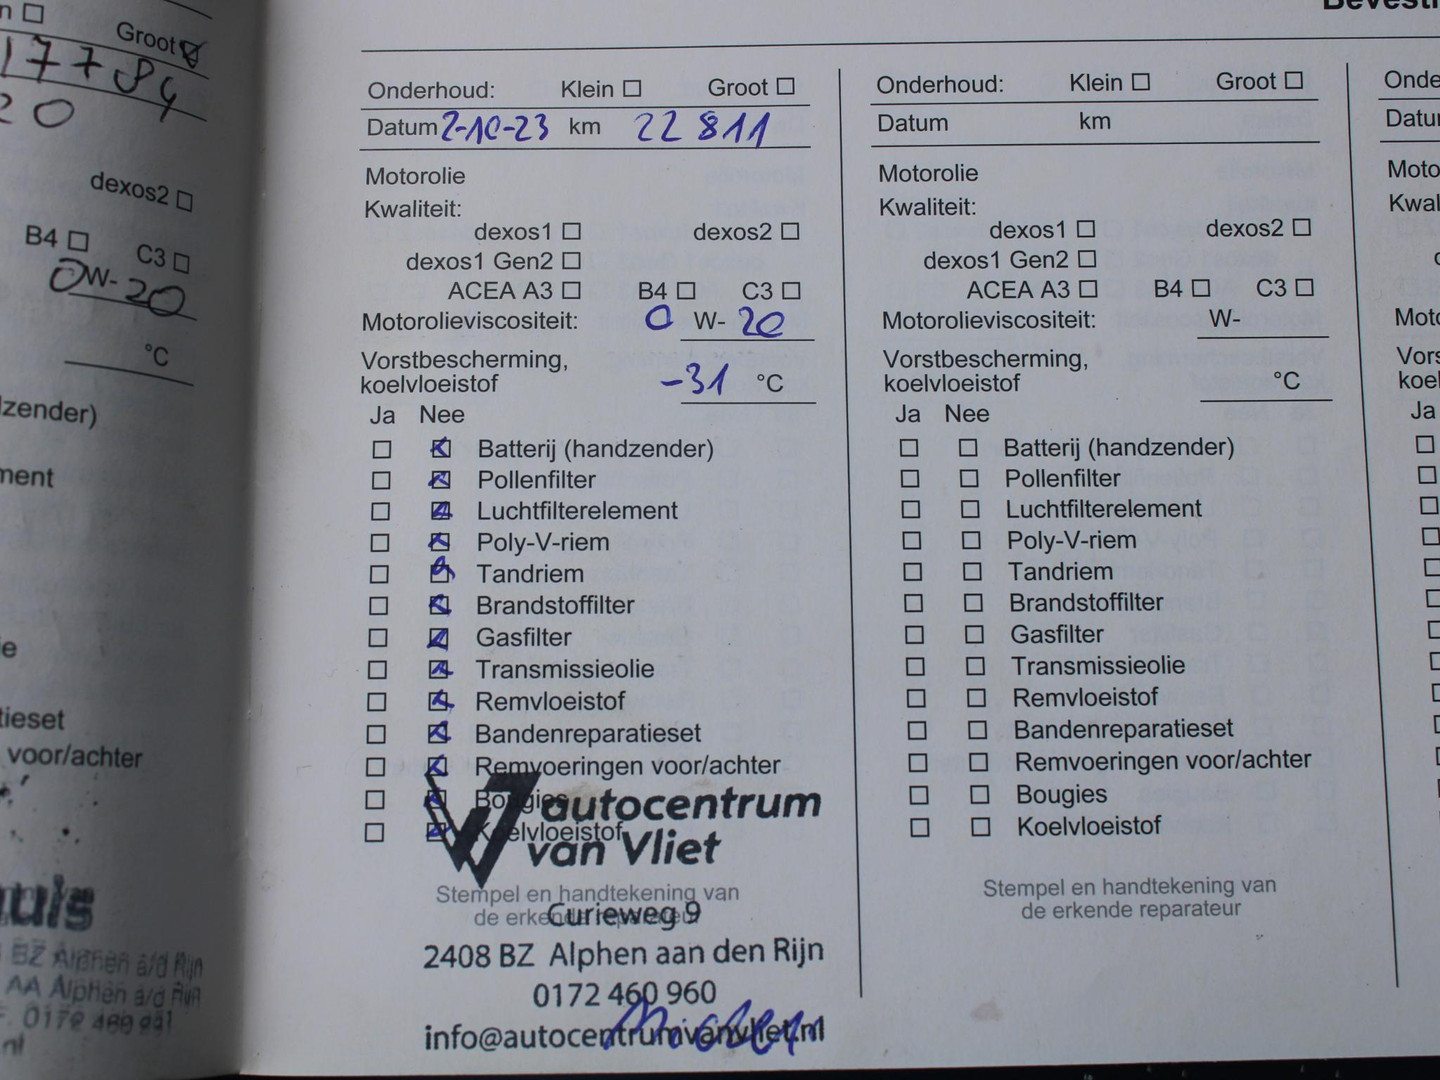 Groot
17784
20
dexos2
B4 C3
0W-20
°C
voor/achter
BZ Alphen a/d Rijn
AA Alphen a/d Rijn
Onderhoud: Klein Groot
Datum 2-10-23 km 22 811
Motorolie
Kwaliteit:
dexos1 dexos2
dexos1 Gen2
ACEA A3 B4 C3
Motorolieviscositeit: 0 W- 20
Vorstbescherming,
koelvloeistof -31 °C
Ja Nee
Batterij (handzender)
Pollenfilter
Luchtfilterelement
Poly-V-riem
Tandriem
Brandstoffilter
Gasfilter
Transmissieolie
Remvloeistof
Bandenreparatieset
Remvoeringen voor/achter
Bougies
Koelvloeistof
autocentrum
van Vliet
Stempel en handtekening van
de erkende reparateur
Curieweg 9
2408 BZ Alphen aan den Rijn
0172 460 960
info@autocentrumvanvliet.nl
Onderhoud: Klein Groot
Datum km
Motorolie
Kwaliteit:
dexos1 dexos2
dexos1 Gen2
ACEA A3 B4 C3
Motorolieviscositeit: W-
Vorstbescherming,
koelvloeistof °C
Ja Nee
Batterij (handzender)
Pollenfilter
Luchtfilterelement
Poly-V-riem
Tandriem
Brandstoffilter
Gasfilter
Transmissieolie
Remvloeistof
Bandenreparatieset
Remvoeringen voor/achter
Bougies
Koelvloeistof
Stempel en handtekening van
de erkende reparateur
Ja